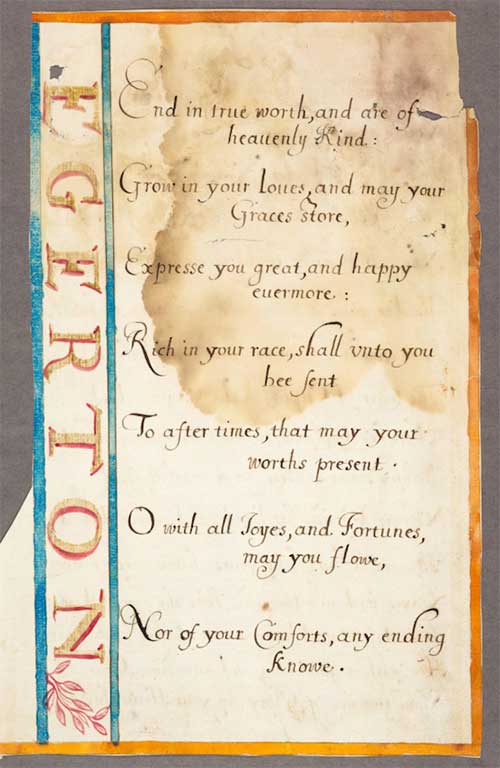 EGERTON
End in true worth, and are of
heauenly Kind :
Grow in your loues, and may your
Graces store,
Expresse you great, and happy
euermore. :
Rich in your race, shall vnto you
bee sent
To after times, that may your
worths present .
O with all Ioyes, and Fortunes,
may you flowe,
Nor of your Comforts, any ending
Knowe .